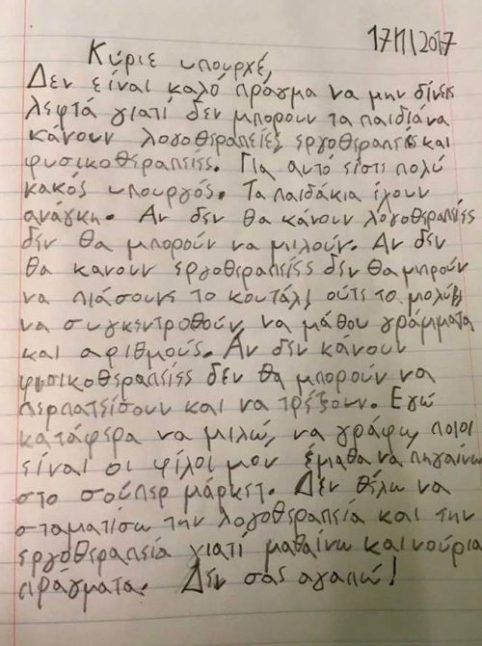 17/1/2017
Κύριε υπουρχέ,
Δεν είναι καλό πράγμα να μην δίνεις
λεφτά γιατί δεν μπορουν τα παιδιά να
κάνουν λογοθεραπείες εργοθεραπείες και
φυσικοθεραπείες. Για αυτό είστε πολύ
κακός υπουργός. Τα παιδάκια έχουν
ανάγκη. Αν δεν θα κάνουν λογοθεραπείες
δεν θα μπορούν να μιλούν. Αν δεν
θα κανουν εργοθεραπείες δεν θα μπορούν
να πιάσουνε το κουτάλι ούτε το μολύβι
να συγκεντροθούν να μάθου γράμματα
και αριθμούς. Αν δεν κάνουν
φυσικοθεραπείες δεν θα μπορούν να
περπατείσουν και να τρέξουν. Εγώ
κατάφερα να μιλώ, να γράφω, ποιοι
είναι οι φίλοι μου έμαθα να πηγαίνω
στο σούπερ μάρκετ. Δεν θέλω να
σταματίσω την λογοθεραπεία και την
εργοθεραπεία γιατί μαθαίνω καινούρια
πράγματα. Δεν σας αγαπώ!